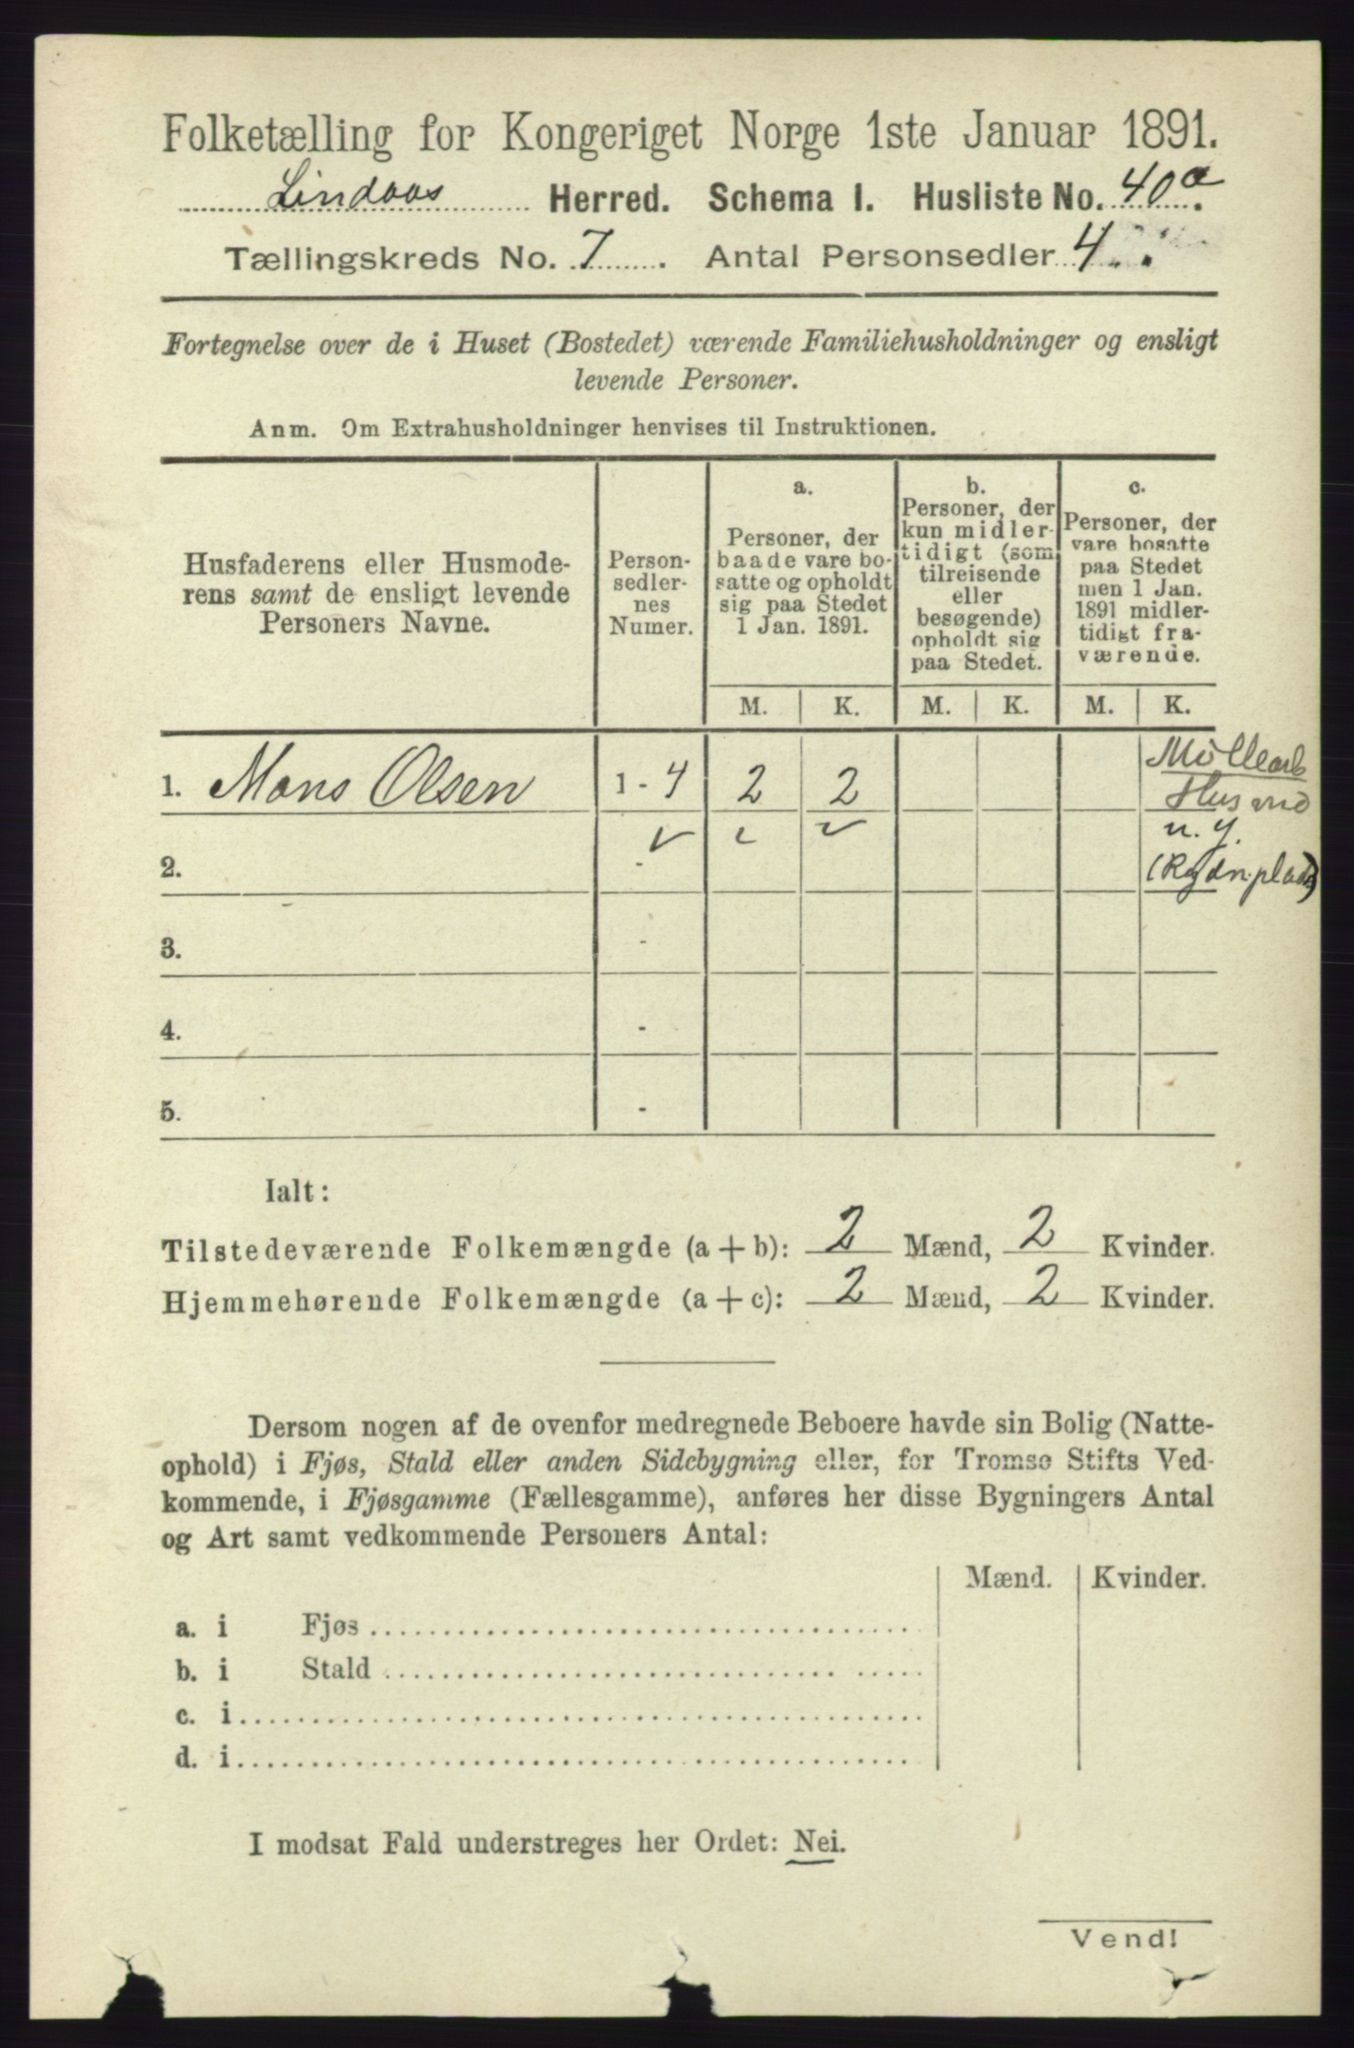 Folketælling for Kongeriget Norge 1ste Januar 1891.
Lindaas Herred. Schema I. Husliste No. 40a.
Tællingskreds No. 7. Antal Personsedler 4.
Fortegnelse over de i Huset (Bostedet) værende Familiehusholdninger og ensligt
levende Personer.
Anm. Om Extrahusholdninger henvises til Instruktionen.
Husfaderens eller Husmode-
rens samt de ensligt levende
Personers Navne.
Person-
sedler-
nes
Numer.
a.
Personer, der
baade vare bo-
satte og opholdt
sig paa Stedet
1 Jan. 1891.
b.
Personer, der
kun midler-
tidigt (som
tilreisende
eller
besøgende)
opholdt sig
paa Stedet.
c.
Personer, der
vare bosatte
paa Stedet
men 1 Jan.
1891 midler-
tidigt fra-
værende.
M. K. M. K. M. K.
1. Mons Olsen 1 - 4 2 2
Møllearb
Husmd
u. j.
2. -
3. -
4. -
5. -
Ialt:
Tilstedeværende Folkemængde (a + b): 2 Mænd, 2 Kvinder.
Hjemmehørende Folkemængde (a + c): 2 Mænd, 2 Kvinder.
Dersom nogen af de ovenfor medregnede Beboere havde sin Bolig (Natte-
ophold) i Fjøs, Stald eller anden Sidebygning eller, for Tromsø Stifts Ved-
kommende, i Fjøsgamme (Fællesgamme), anføres her disse Bygningers Antal
og Art samt vedkommende Personers Antal:
Mænd. Kvinder.
a. i Fjøs
b. i Stald
c. i
d. i
I modsat Fald understreges her Ordet: Nei.
Vend!